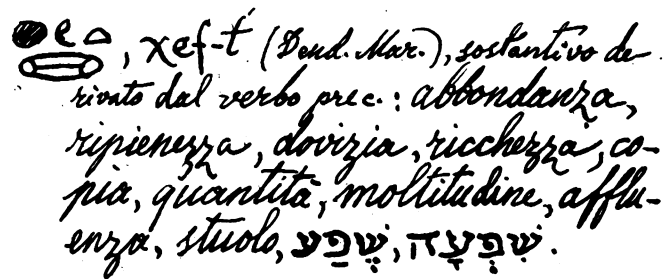 , χef-t́ (Dend. Mar.), sostantivo de-
rivato dal verbo prec.: abbondanza,
ripienezza, dovizia, ricchezza, co-
pia, quantità, moltitudine, afflu-
enza, stuolo, שֶׁפַע, שִׁפְעָה.